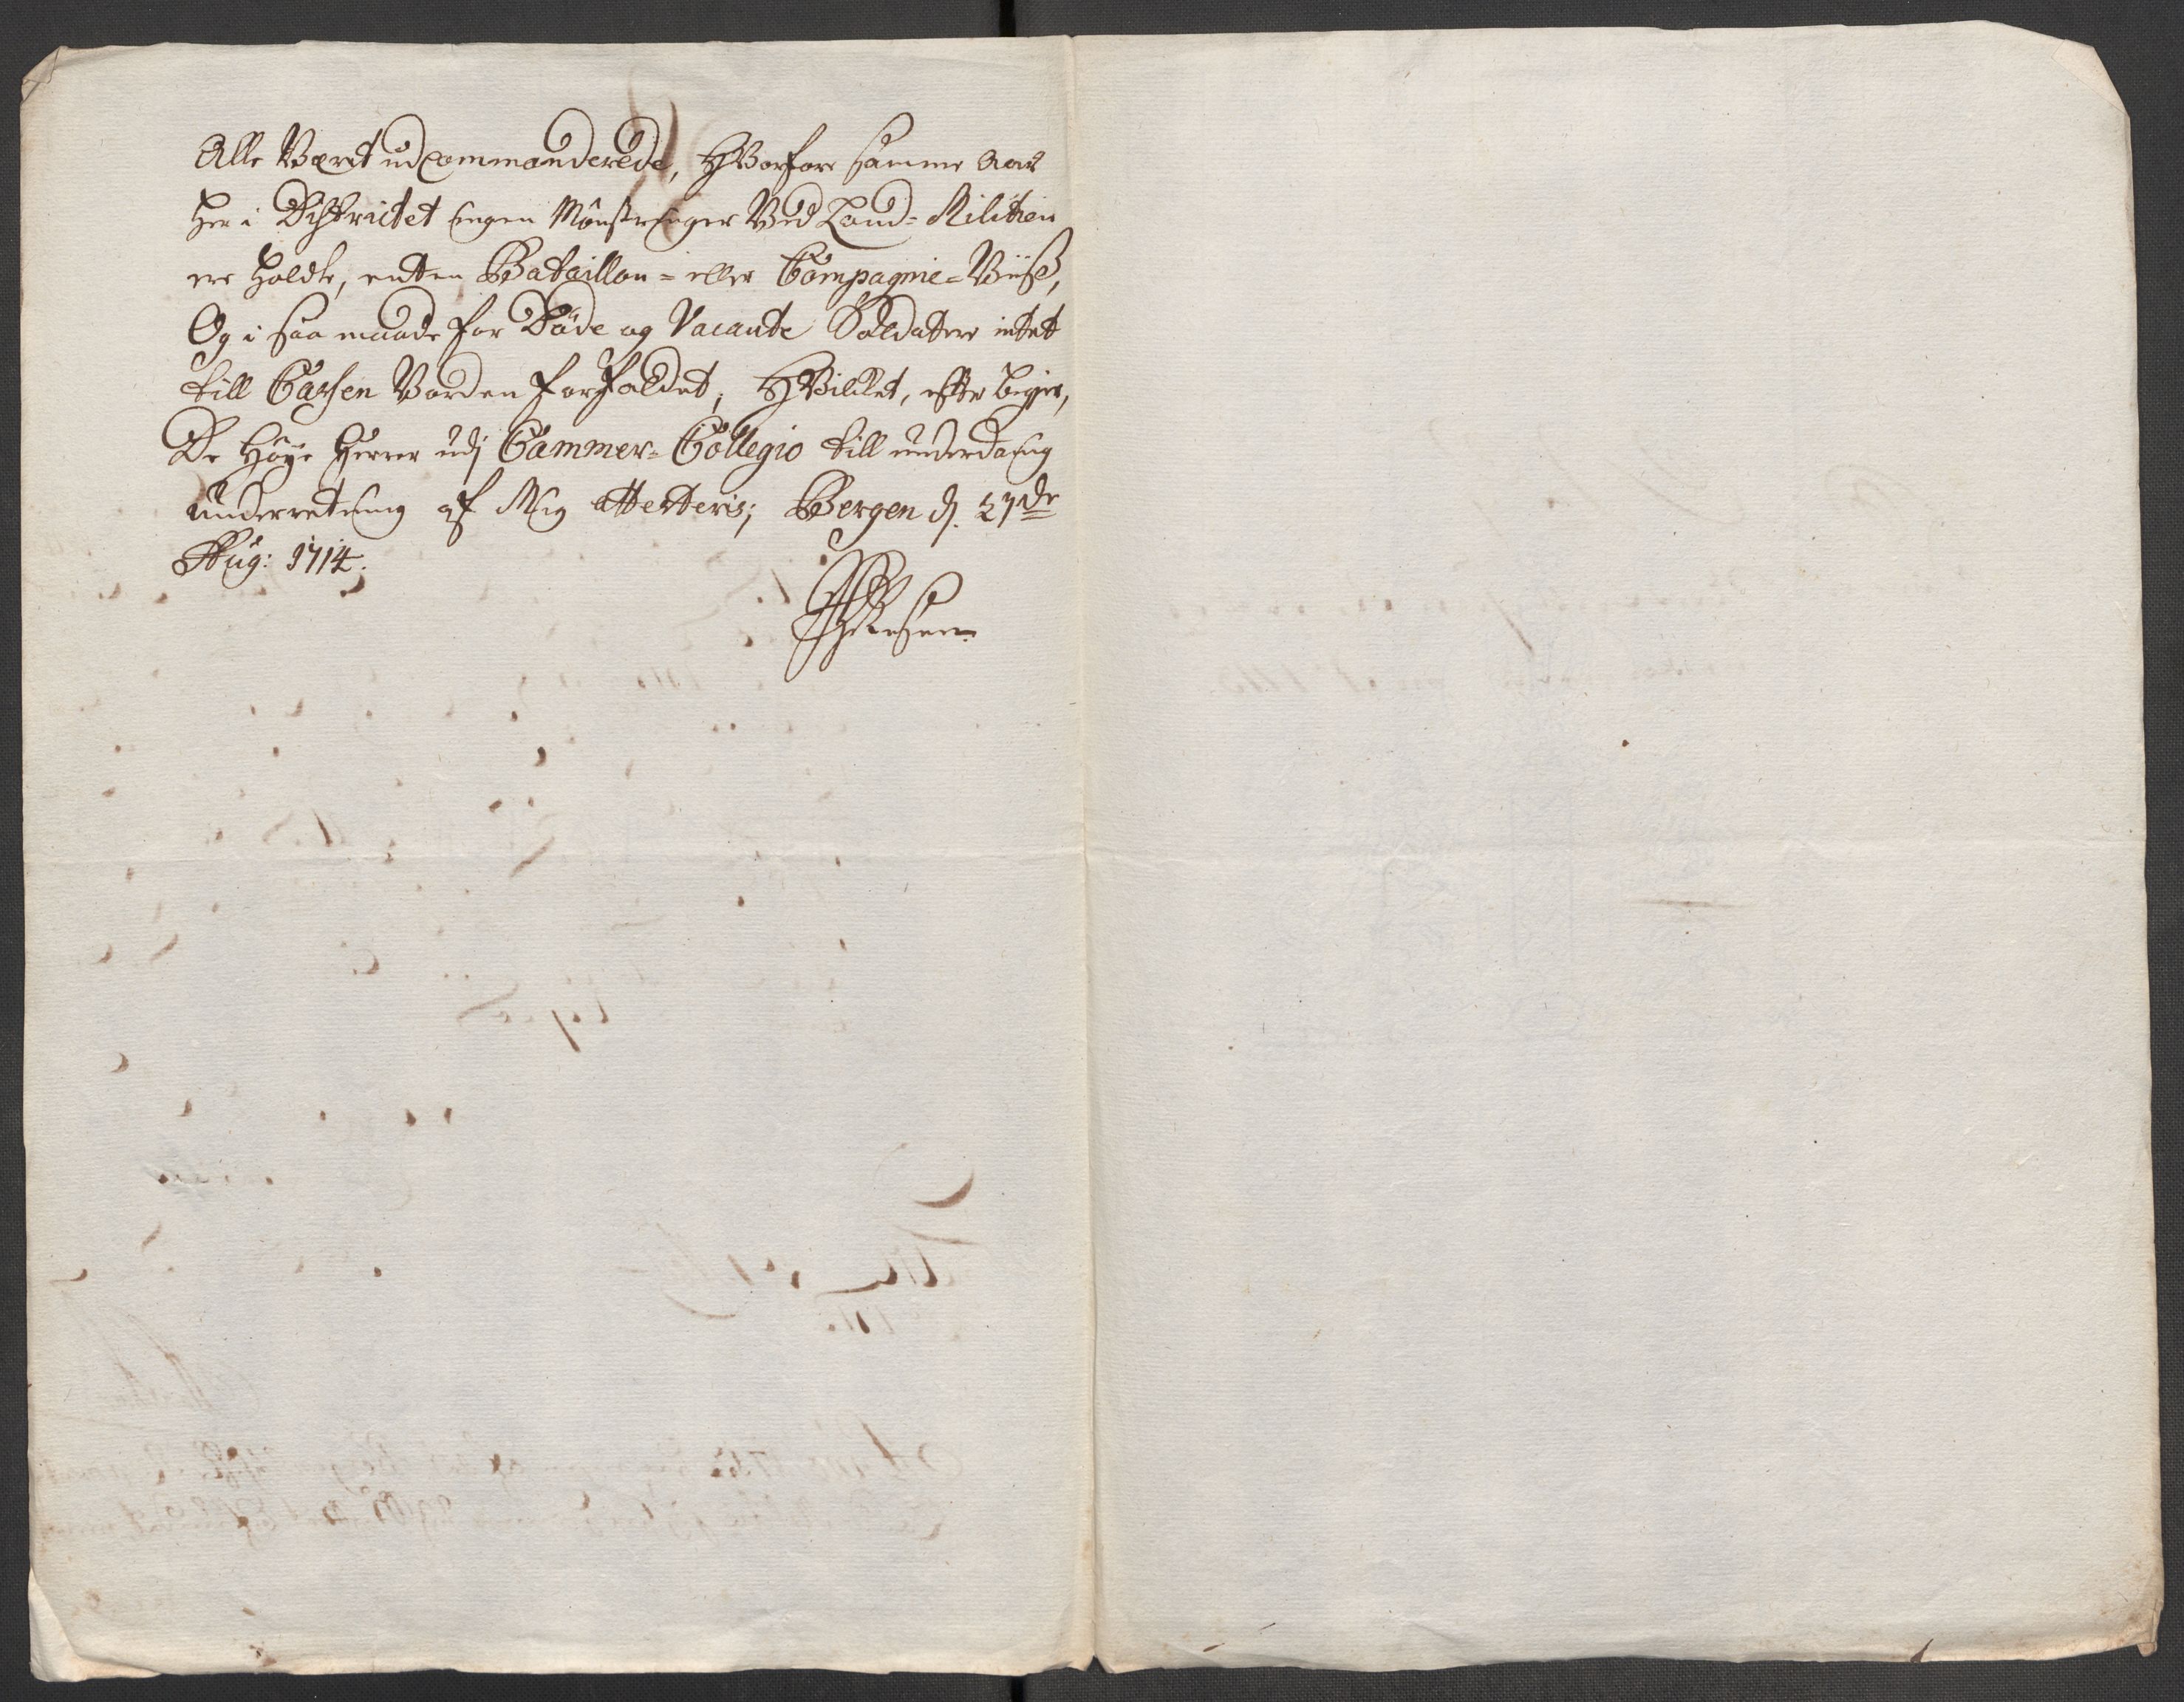 Alle Været udcommanderede, Hvorfore samme aar
her i Districtet ingen Mönstringer Ved Land-Militien
ere holdte, enten Bataillon- eller Compagnie-Viiß,
Og i saa maade for Döde og Vacante Soldater intet
till Cassen Vorden forfaldet; Hvilket, efter begier,
De Höye Herrer udj Cammer-Collegio till underdanig
underretning af Mig attesteris; Bergen d. 27de
Aug: 1714.